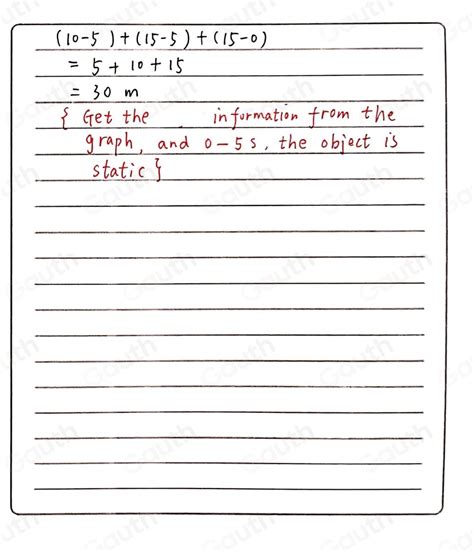 (10-5)+(15-5)+(15-0)
= 5+10+15
= 30 m
{ Get the information from the
graph, and 0-5s, the object is
static }